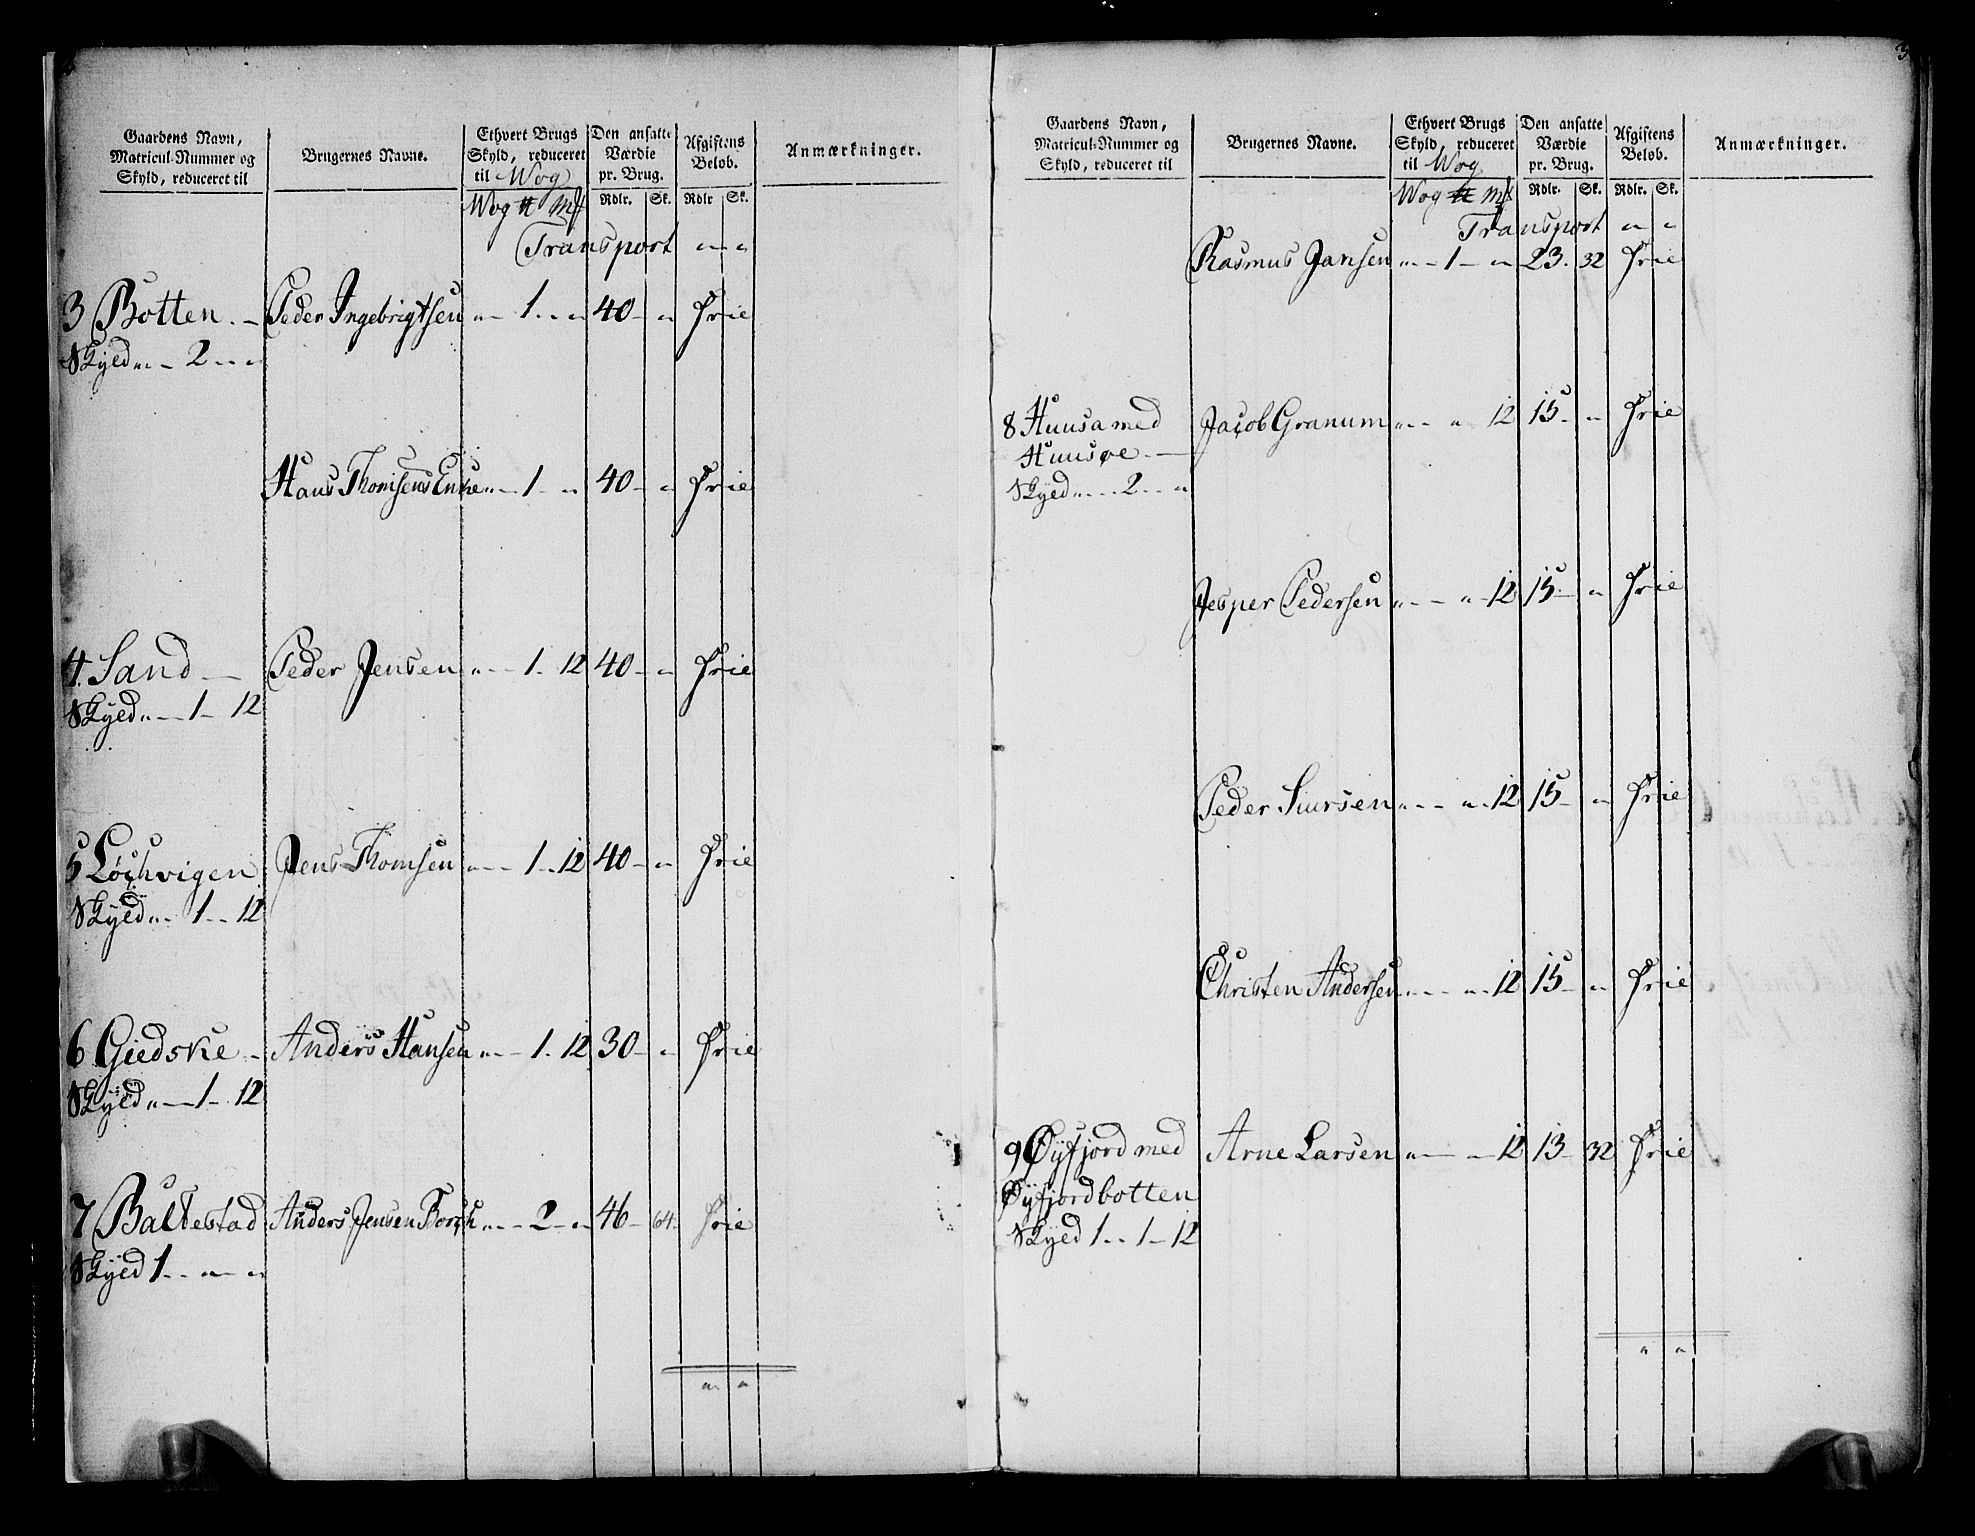 Gaardens Navn, Matricul-Nummer og Skyld, reduceret til
Brugernes Navne.
Ethvert Brugs Skyld, reduceret til Wog
Den ansatte Værdie pr. Brug.
Afgiftens Beløb.
Anmærkninger.
Wog ℔ Mk Rdlr. Sk. Rdlr Sk.
Transport " — "
3 Botten. — Peder Ingebrigtsen " — 1 - - " 40 — " Frie
Skyld " - — 2 - - "
Hans Thomsens Enke " — 1 - " 40 — " Frie
4. Sand — Peder Jensen " — 1 - 12 40 — " Frie
Skyld " — 1 — 12
5 Løchvigen Jens Thomsen " - — 1 - - 12 40 — " Frie
Skyld " - — 1 - - 12
6 Giedske - Anders Hansen " - — 1 - 12 30 — " Frie
Skyld " — 1 — 12
7 Baltestad Anders Jensen Borch " - — 2 - " 46 - 64 - Frie
Skyld 1 - - " — "
" "
3
Gaardens Navn, Matricul-Nummer og Skyld, reduceret til
Brugernes Navne.
Ethvert Brugs Skyld, reduceret til Wog
Den ansatte Værdie pr. Brug.
Afgiftens Beløb.
Anmærkninger.
Wog ℔ Mk Rdlr. Sk. Rdlr. Sk.
Transport " — "
Rasmus Jansen " - — 1 — " 23. 32 Frie
8 Huusa med Jacob Granum " - — " 12 15 - " Frie
Huusøe —
Skyld " - - - 2 - - "
Jesper Pedersen " - — " - 12 15 — " Frie
Peder Siursen " - — " - 12 15 — " Frie
Christen Andersen " - — " - 12 15 — " Frie
9 Øyfjord med Arne Larsen " — " 12 13 - 32 Frie
Øyfjordbotten
Skyld 1 - - 1 — 12
" "